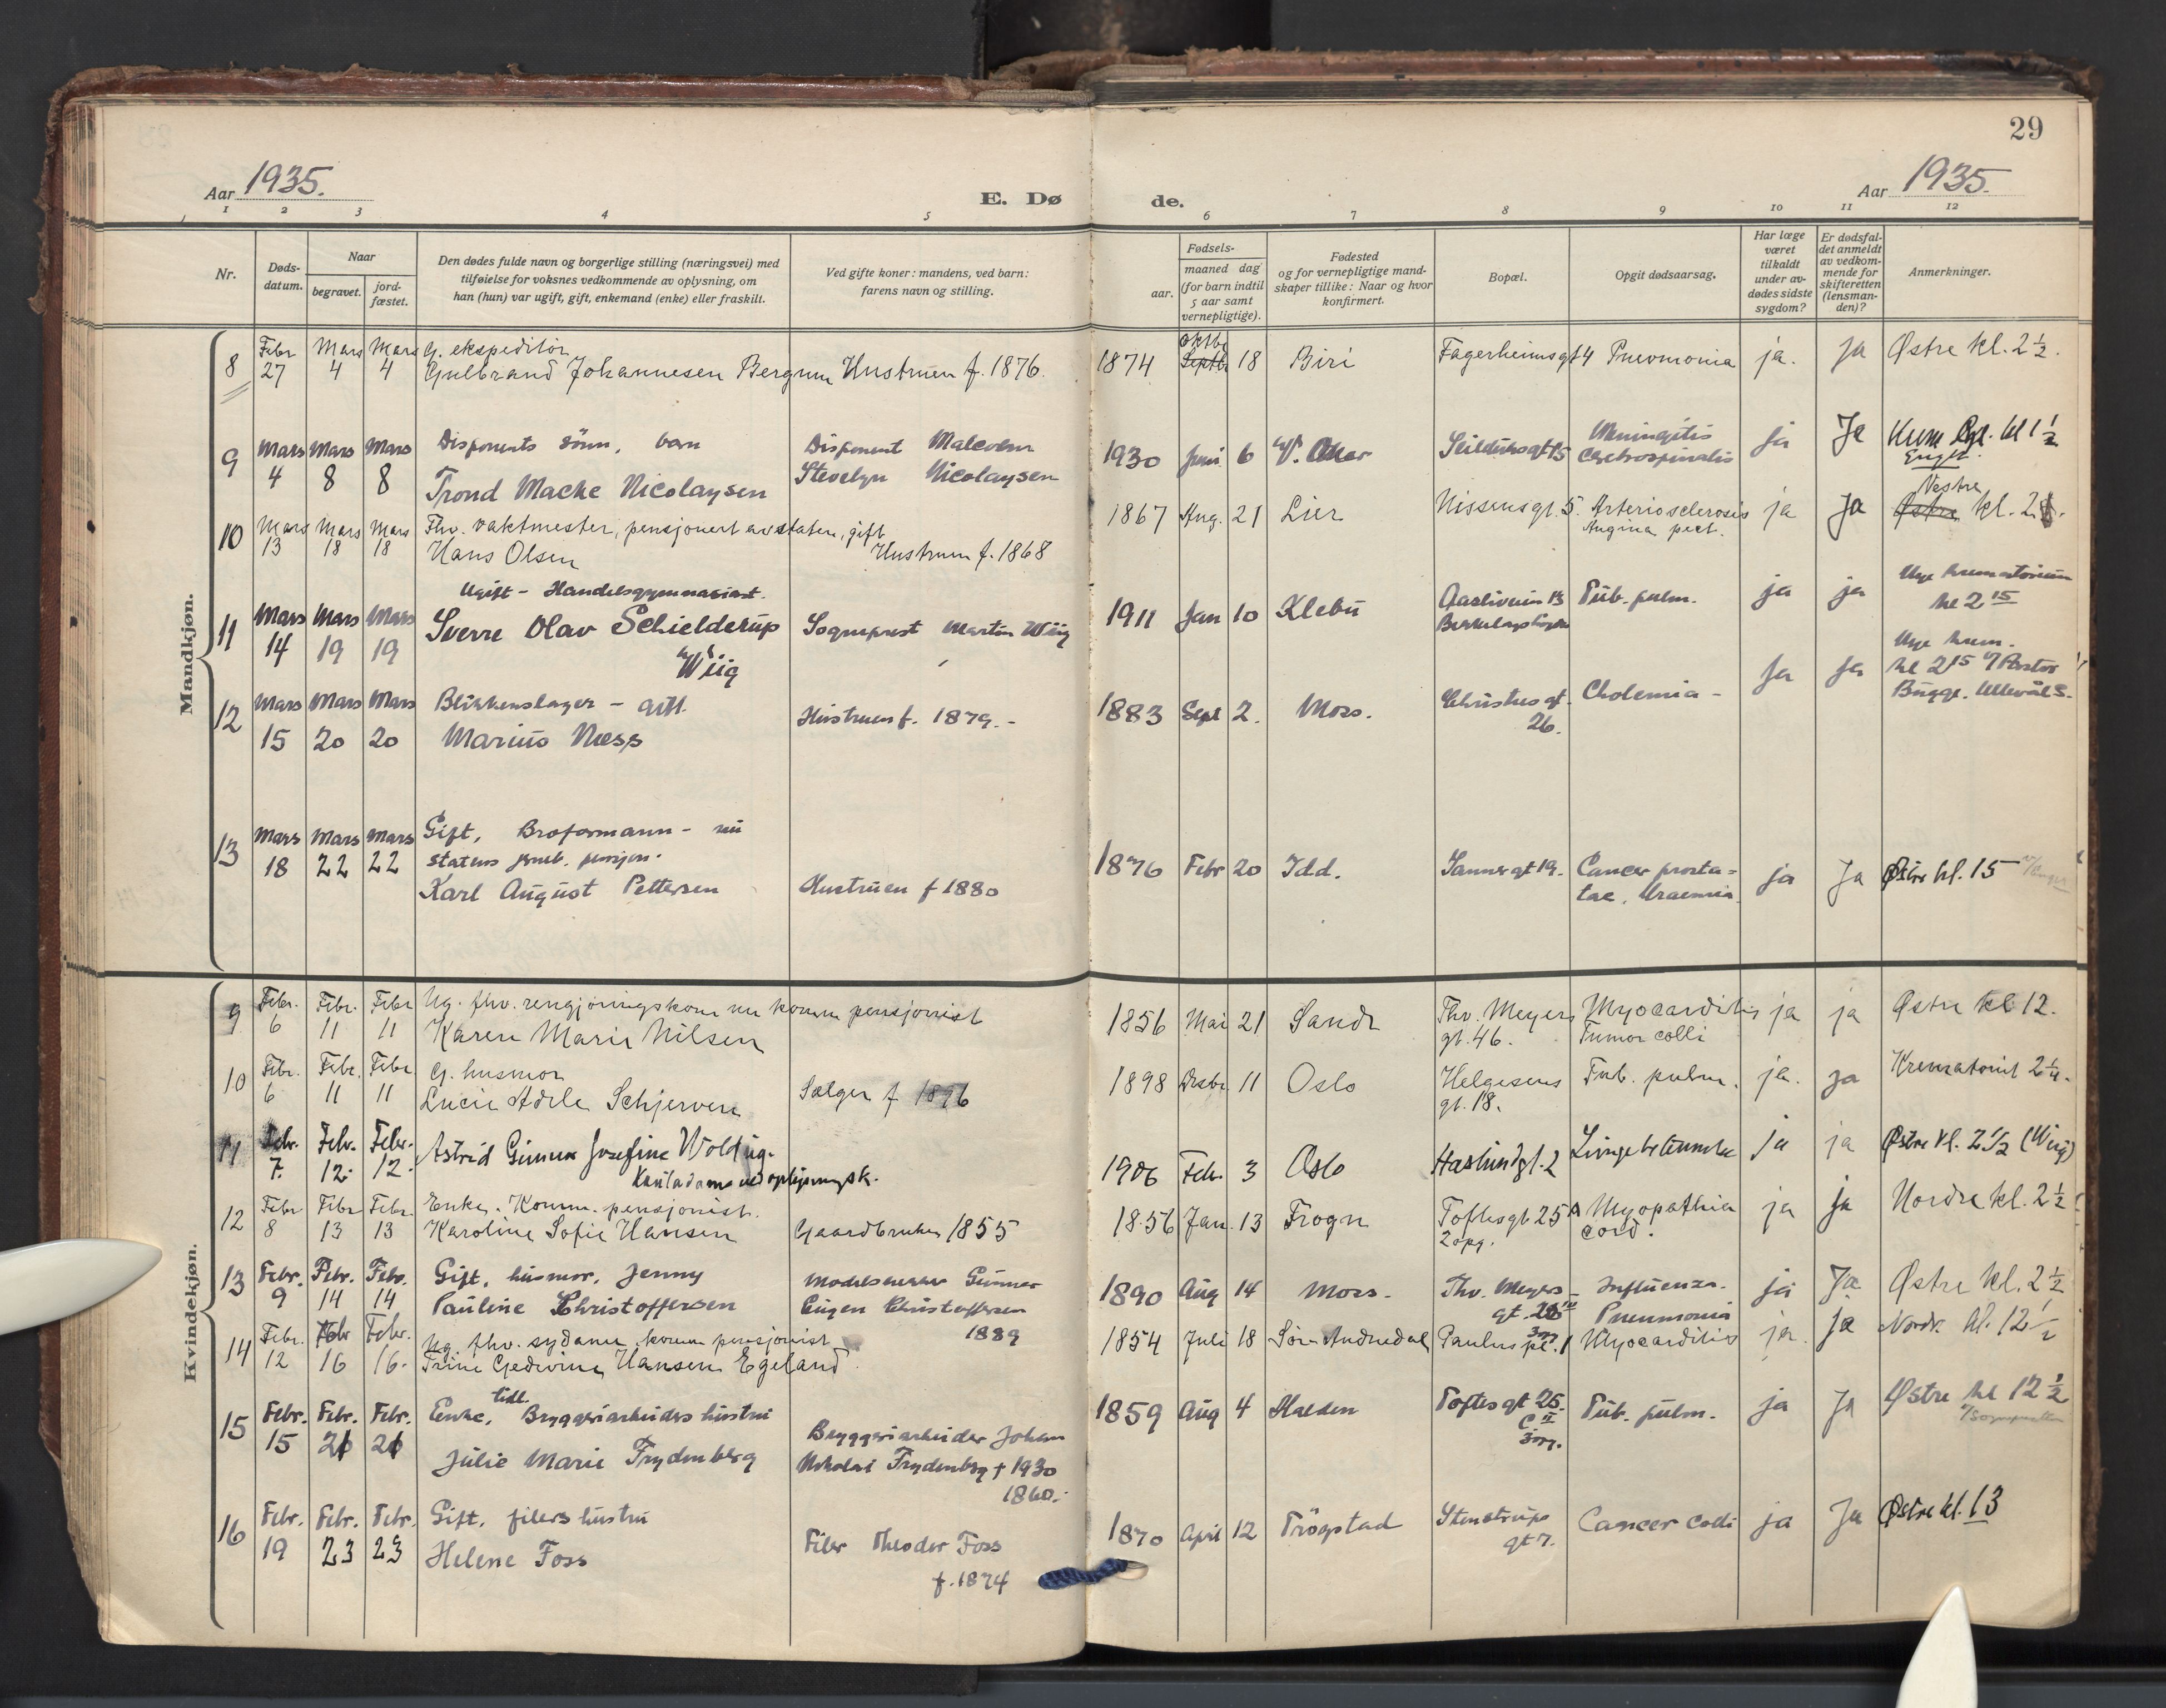 29
Aar 1935.
E. Døde.
Aar 1935.
1 2 3 4 5 6 7 8 9 10 11 12
Nr.
Døds-datum.
Naar
begravet.
jord-fæstet.
Den dødes fulde navn og borgerlige stilling (næringsvei) med
tilføielse for voksnes vedkommende av oplysning, om
han (hun) var ugift, gift, enkemand (enke) eller fraskilt.
Ved gifte koner: mandens, ved barn:
farens navn og stilling.
Fødsels-
aar.
maaned dag
(for barn indtil
5 aar samt
vernepligtige).
Fødested
og for vernepligtige mand-
skaper tillike: Naar og hvor
konfirmert.
Bopæl.
Opgit dødsaarsag.
Har læge
været
tilkaldt
under av-
dødes sidste
sygdom?
Er dødsfal-
det anmeldt
av vedkom-
mende for
skifteretten
(lensman-
den)?
Anmerkninger.
Mandkjøn.
8 Febr 27 Mars 4 Mars 4 G. ekspeditör
Gulbrand Johannesen Bergum Hustruen f. 1876. 1874 Septbr oktbr 18 Biri Fagerheimsgt 4 Pneumonia ja. Ja Østre kl. 2 1/2.
9 Mars 4 Mars 8 Mars 8 Disponents sönn, barn
Trond Macke Nicolaysen
Disponent Malcolm
Stevelyn Nicolaysen
1930 Juni 6 V. Aker Seilduksgt 15 Meningitis
Cerebrospinalis ja Ja kl 1 1/2
10 Mars 13 Mars 18 Mars 18 Fhv. vaktmester, pensjonert av staten, gift
Hans Olsen Hustruen f. 1868
1867 Aug. 21 Lier Nissensgt. 5. Arteriosclerosis
Angina pect. ja Ja Østre Vestre kl. 2
11 Mars 14 Mars 19 Mars 19 Ugift - Handelsgymnasiast.
Sverre Olav Schielderup
Wiig
Sogneprest Martin Wiig
1911 Jan 10 Klebu Aasliveien 13
Tub. pulm. ja ja Nye krematorium
kl 2 15
12 Mars 15 Mars 20 Mars 20 Blikkenslager - gift
Marius Næss
Hustruen f. 1879. -
1883 Sept 2. Moss. Christiesgt.
26. Cholemia - Ja Ja Nye krem.
kl 2 15 v/Pastor
Bugge. Ullevål S.
13 Mars 18 Mars 22 Mars 22 Gift, Broformann - nu
statens jernb. pensjon.
Karl August Pettersen
Hustruen f 1880
1876 Febr 20 Idd. Sannergt 19. Cancer prosta=
tae, Uraemia. ja Ja Østre kl. 15
Kvindekjøn.
9 Febr. 6 Febr. 11 Febr 11 Ug. fhv. rengjöringskone nu komm pensjonist
Karen Marie Nilsen
1856 Mai 21 Sandr Thv. Meyers
gt. 46. Myocarditis
Tumor colli ja ja Østre kl 12.
10 Febr. 6 Febr. 11 Febr 11 G. husmor
Lucie Adele Schjerven
Sælger f 1896
1898 Desbr 11 Oslo Helgesens
gt. 18. Tub. pulm. ja. ja Krematoriet 2 1/4.
11 Febr. 7. Febr. 12. Febr. 12. Astrid Gunnor Josefine Wold ug.
Kontordame ved oplysningsk.
1906 Febr. 3 Oslo Haslundgt. 2 Lungebetennelse ja ja Østre kl. 2 1/2 (Wiig)
12 Febr 8 Febr 13 Febr. 13 Enke. Komm. pensjonist.
Karoline Sofie Hansen
Gaardbruker 1855
1856 Jan 13 Frogn Toftesgt 25 A
2 opg. Myopathia
cord. ja ja Nordre kl. 2 1/2
13 Febr. 9 Febr. 14 Febr. 14 Gift, husmor, Jenny
Pauline Christoffersen
Modelsnekker Gunnar
Eugen Christoffersen
1889
1890 Aug 14 Moss. Thv. Meyers
gt. Influenza.
Pneumonia ja Ja Østre kl. 2 1/2
14 Febr. 12 Febr 16 Febr. 16. Ug. fhv. sydame, komm pensjonist
Trine Gedvine Hansen Egeland
1854 Juli 18 Sör-Audnedal Paulus pl. 1 Myocarditis ja. Ja Nordr. kl. 12 1/2
15 Febr. 15 Febr. 21 Febr. 21 Enke, tidl. Bryggeriarbeiders hustru
Julie Marie Frydenberg
Bryggeriarbeider Johan
Nikolai Frydenberg † 1930
1860.
1859 Aug 4 Halden Toftesgt 25.
C II
3 opg. Tub. pulm. ja Ja Østre kl 12 1/2
16 Febr. 19 Febr. 23 Febr. 23 Gift, filers hustru
Helene Foss
Filer Theodor Foss
f. 1874
1870 April 12 Trögstad Stenstrups
gt 7. Cancer colli ja Ja Østre kl. 13